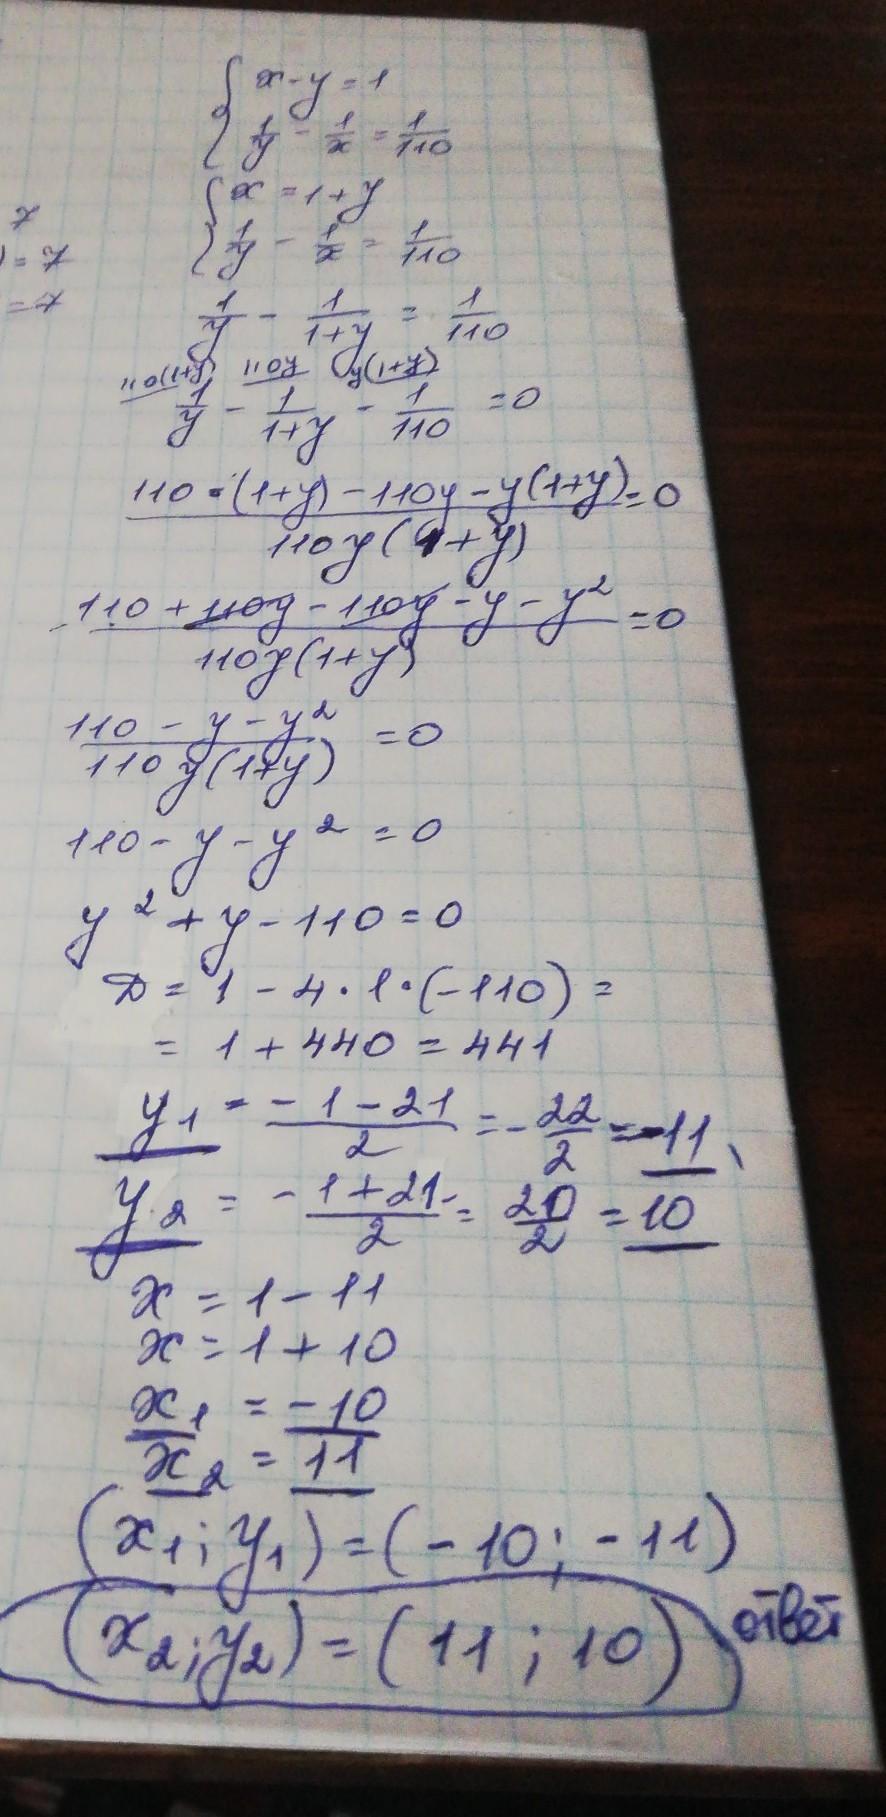 x - y = 1
1/y - 1/x = 1/110
x = 1 + y
7
1/y - 1/x = 1/110
) = 7
= 7
1/y - 1/(1+y) = 1/110
110(1+y) 110y y(1+y)
1/y - 1/(1+y) - 1/110 = 0
(110·(1+y) - 110y - y(1+y))/(110y(1+y)) = 0
(110 + 110y - 110y - y - y²)/(110y(1+y)) = 0
(110 - y - y²)/(110y(1+y)) = 0
110 - y - y² = 0
y² + y - 110 = 0
D = 1 - 4·1·(-110) =
= 1 + 440 = 441
y₁ = (-1-21)/2 = -22/2 = -11
y₂ = -(1+21)/2 = 20/2 = 10
x = 1 - 11
x = 1 + 10
x₁ = -10
x₂ = 11
(x₁; y₁) = (-10; -11)
(x₂; y₂) = (11; 10) ответ